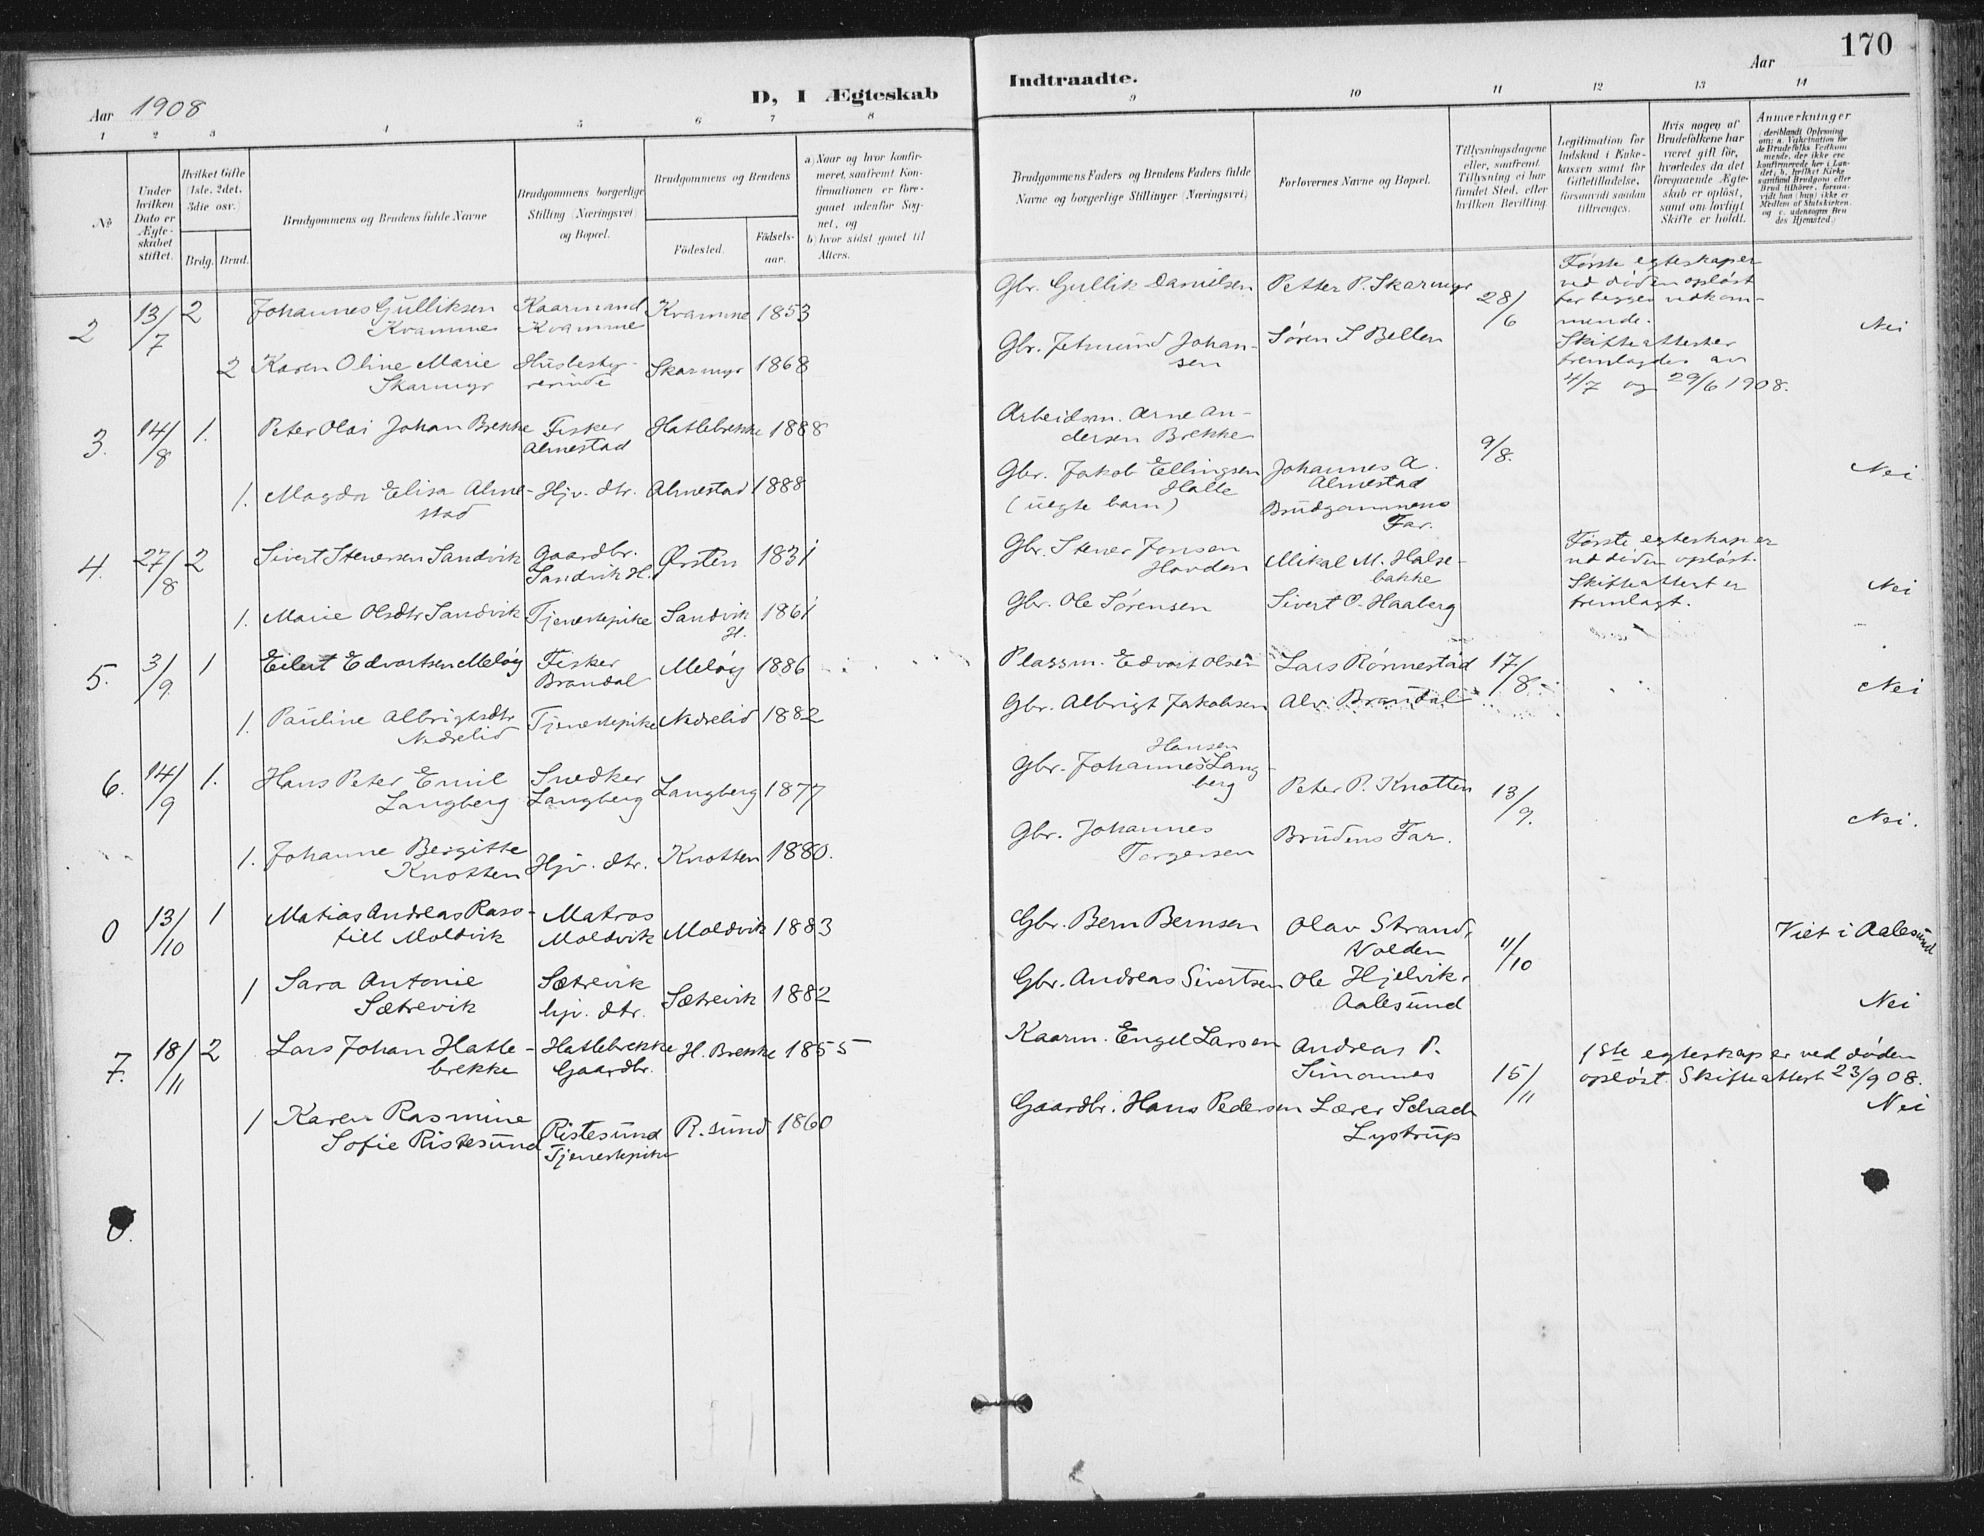 170
Aar 1908
D, I Ægteskab
Indtraadte.
Aar
1 2 3 4 5 6 7 8 9 10 11 12 13 14
No
Under hvilken Dato er Ægteskabet stiftet.
Hvilket Gifte (1ste. 2det. 3die osv.)
Brdg. Brud.
Brudgommens og Brudens fulde Navne
Brudgommens borgerlige Stilling (Næringsvei) og Bopæl.
Brudgommens og Brudens
Födested.
Födsels-aar.
a) Naar og hvor konfirmeret, saafremt Konfirmationen er foregaaet udenfor Sognet, og
b) hvor sidst gaaet til Alters.
Brudgommens Faders og Brudens Faders fulde Navne og borgerlige Stillinger (Næringsvei)
Forlovernes Navne og Bopæl.
Tillysningsdagene eller, saafremt Tillysning ei har fundet Sted, efter hvilken Bevilling
Legitimation for Indskud i Enkekassen samt for Giftetilladelse, forsaavidt saadan tiltrænges.
Hvis nogen af Brudefolkene har været gift för, hvorledes da det foregaaende Ægteskab er oplöst, samt om lovligt Skifte er holdt.
Anmærkninger
2 13/7 2 Johannes Gulliksen Kvamme Kaarmand Kvamme Kvamme 1853 Gbr. Gullik Danielsen Petter P. Skarmyr 28/6 Første egteskap er ved døden opløst for begges vedkommende. Skifteattester fremlagdes av 4/7 og 29/6 1908. Nei
2 Karen Oline Marie Skarmyr Husbestyrerinde Skarmyr 1868 Gbr. Jetmund Johansen Søren S Bellen
3. 14/8 1. Peter Olai Johan Brekke Fisker Almestad Hatlebrekke 1888 Arbeidsm. Arne Andersen Brekke 9/8. Nei
1. Magda Elisa Almestad Hjv. dtr. Almestad 1888 Gbr. Jakob Ellingsen Hatle (uegte barn) Johannes A. Almestad Brudgommens Far.
4. 27/8 2 Sivert Stenersen Sandvik Gaardbr. Sandvik H. Ørsten 1831 Gbr. Stener Jonsen Hovden Mikal M. Halsebakke Første egteskap er ved døden opløst. Skifteattest er fremlagt. Nei
1. Marie Olsdtr Sandvik Tjenestepike Sandvik H. 1861 Gbr. Ole Sørensen Sivert O. Haaberg
5. 3/9. 1 Eilert Edvartsen Meløy Fisker Brandal Meløy 1886 Plassm. Edvart Olsen Lars Rønnestad 17/8 Nei
1. Pauline Albrigtsdtr Nedrelid Tjenestepike Nedrelid 1882 Gbr. Albrigt Jakobsen Alv. Brandal
6. 14/9 1. Hans Peter Emil Langberg Snedker Langberg Langberg 1877 Gbr. Johannes Hansen Langberg Peter P. Knotten 13/9. Nei.
1. Johanne Bergitte Knotten Hjv. dtr. Knotten 1880. Gbr. Johannes Torgersen Brudens Far.
0 13/10 1 Matias Andreas Rasstill Moldvik Matros Moldvik Moldvik 1883 Gbr. Bern Bernsen Olav Strand, Volden 11/10 Viet i Aalesund
1 Sara Antonie Sætrevik Sætrevik hjv. dtr. Sætrevik 1882 Gbr. Andreas Sivertsen Ole Hjelvik, Aalesund Nei
7. 18/11 2 Lars Johan Hatlebrekke Hatlebrekke Gaardbr. H. Brekke 1855 Kaarm. Engel Larsen Andreas P. Simonnes 15/11 1ste egteskap er ved døden opløst. Skifteattest 23/9 08. Nei
1 Karen Rasmine Sofie Ristesund Ristesund Tjenestepike R. sund 1860 Gaardbr. Hans Pedersen Lærer Schack Lystrup